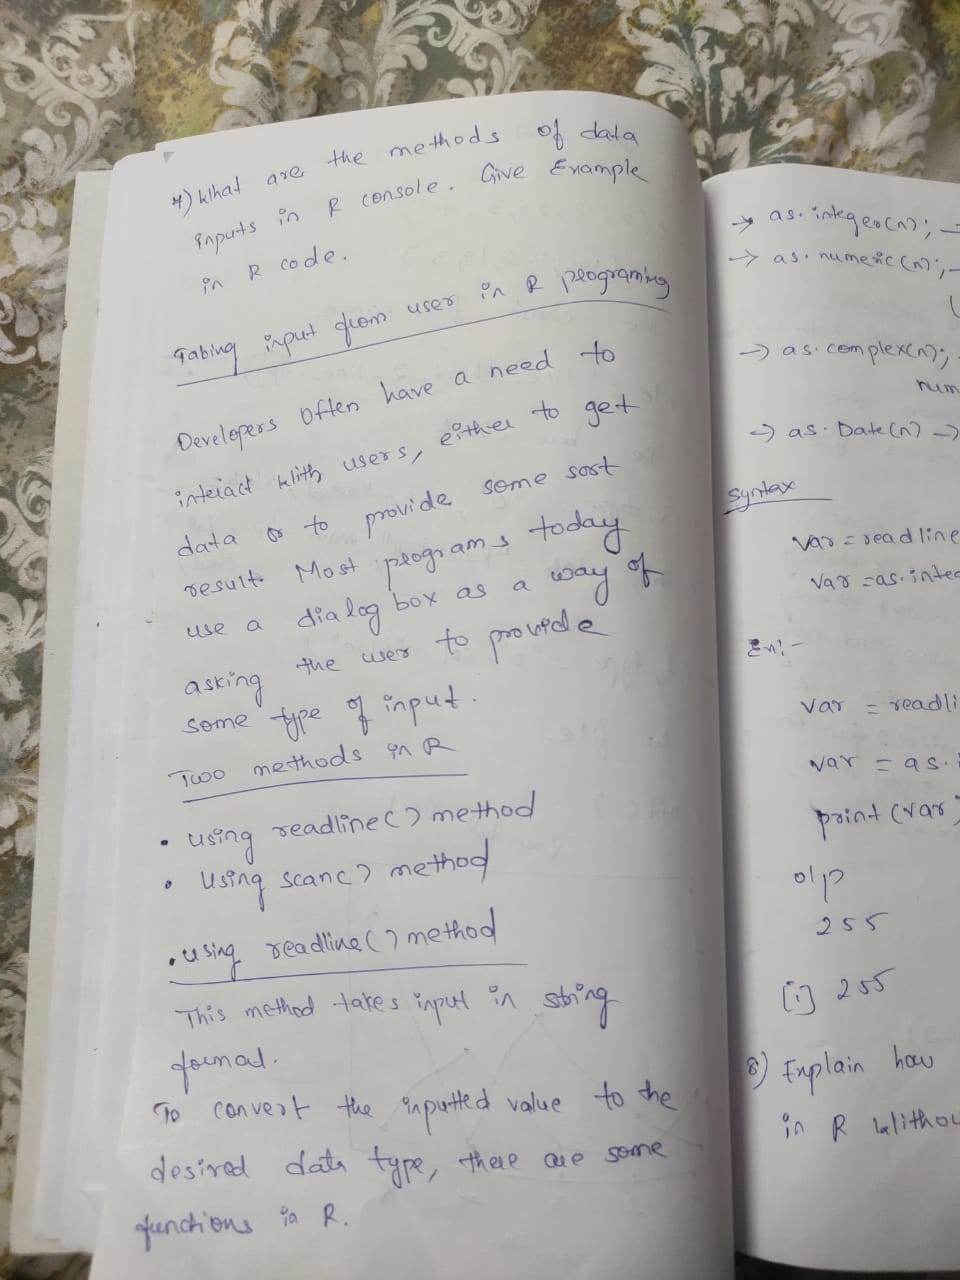 7) What are the methods of data
inputs in R console. Give Example
in R code.
Tabing input from user in R programing
Developers often have a need to
interact with users, either to get
data or to provide some sort
result. Most programs today
use a dialog box as a way of
asking the user to provide
some type of input.
Two methods in R
• using readline() method
• Using scan() method
• using readline() method
This method takes input in string
format.
To convert the inputted value to the
desired data type, there are some
functions in R.
→ as.integer(n); —
→ as.numeric(n); —
(
→ as.complex(n);
num
→ as.Date(n) →
Syntax
Var = readline
Var = as.integ
Ex:-
Var = readli
Var = as.i
print(var)
o/p
255
[1] 255
8) Explain how
in R withou